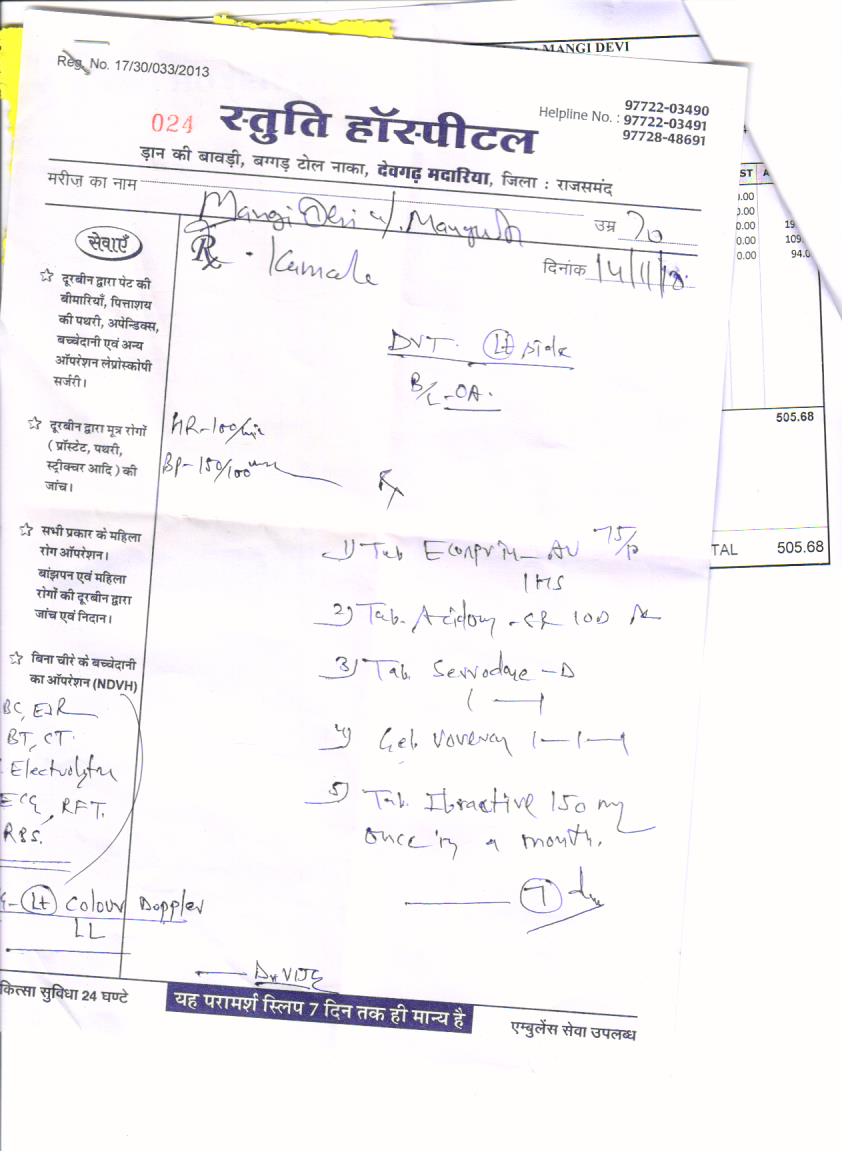 MANGI DEVI
Reg. No. 17/30/033/2013
Helpline No. : 97722-03490
97722-03491
97728-48691
024 स्तुति हॉस्पीटल
ड़ान की बावड़ी, बग्गड़ टोल नाका, देवगढ़ मदारिया, जिला : राजसमंद
मरीज़ का नाम Mangi Devi उम्र 70
Rx
दिनांक 14/11/18
सेवाएँ
दूरबीन द्वारा पेट की
बीमारियाँ, पित्ताशय
की पथरी, अपेन्डिक्स,
बच्चेदानी एवं अन्य
ऑपरेशन लेप्रोस्कोपी
सर्जरी।
दूरबीन द्वारा मूत्र रोगों
( प्रॉस्टेट, पथरी,
स्ट्रीक्चर आदि ) की
जांच।
सभी प्रकार के महिला
रोग ऑपरेशन।
बांझपन एवं महिला
रोगों की दूरबीन द्वारा
जांच एवं निदान।
बिना चीरे के बच्चेदानी
का ऑपरेशन (NDVH)
BT, CT.
Electrolyte
ECG, RFT.
RBS.
Lt Colour Doppler
LL
DVT. Lt side
B/L-OA.
HR-100/min
BP-150/100
Rx
1) Tab Ecosprin-AV 75/
1 HS
2) Tab. -CR 100
3) Tab -D
4) Gel. Voveran 1-1-1
5) Tab. 150 mg
once in a month.
7
कित्सा सुविधा 24 घण्टे
यह परामर्श स्लिप 7 दिन तक ही मान्य है
एम्बुलेंस सेवा उपलब्ध
ST
505.68
TAL 505.68